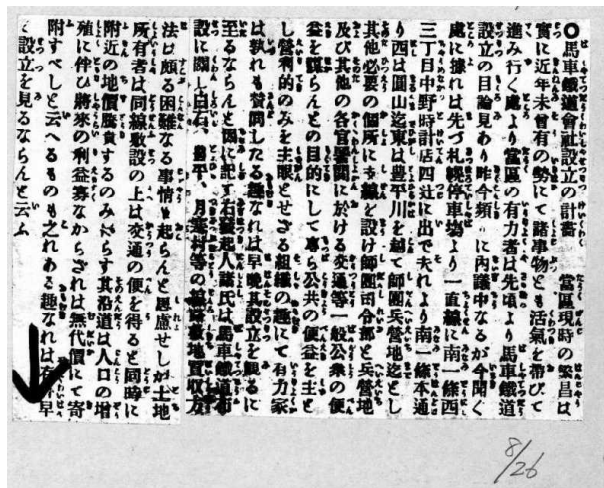 ○馬車鐵道會社設立の計畵　當區現時の繁昌は
實に近年未曾有の勢にて諸事物とも活氣を帶びて
進み行く處より當區の有力者は先頃より馬車鐵道
設立の目論見あり昨今頻りに內議中なるが今聞く
處に據れは先づ札幌停車塲より一直線に南一條西
三丁目中野時計店四辻に出で夫れより南一條本通
り西は圓山迄東は豐平川を越て師團兵營地迄とし
其他必要の個所に支線を設け師團司令部と兵營地
及び其他の各官衙間に於ける交通等一般公衆の便
益を謀らんとの目的にして專ら公共の便益を主と
し營利的のみを主眼とせざる組織の趣にて有力家
は孰れも賛同したる趣なれは早晩其設立を觀るに
至るならんと因に記す右發起人諸氏は馬車鐵道布
設に關し白石、豐平、月寒村等の線路敷地買収方
法は頗る困難なる事情も起らんと思慮せしが土地
所有者は同線敷設の上は交通の便を得ると同時に
附近の地價騰貴するのみならす其沿道は人口の增
殖に伴ひ將來の利益尠なからされは無代價にて寄
附すべしと云へるものも之れある趣なれは
設立を見るならんと云ふ
8/26